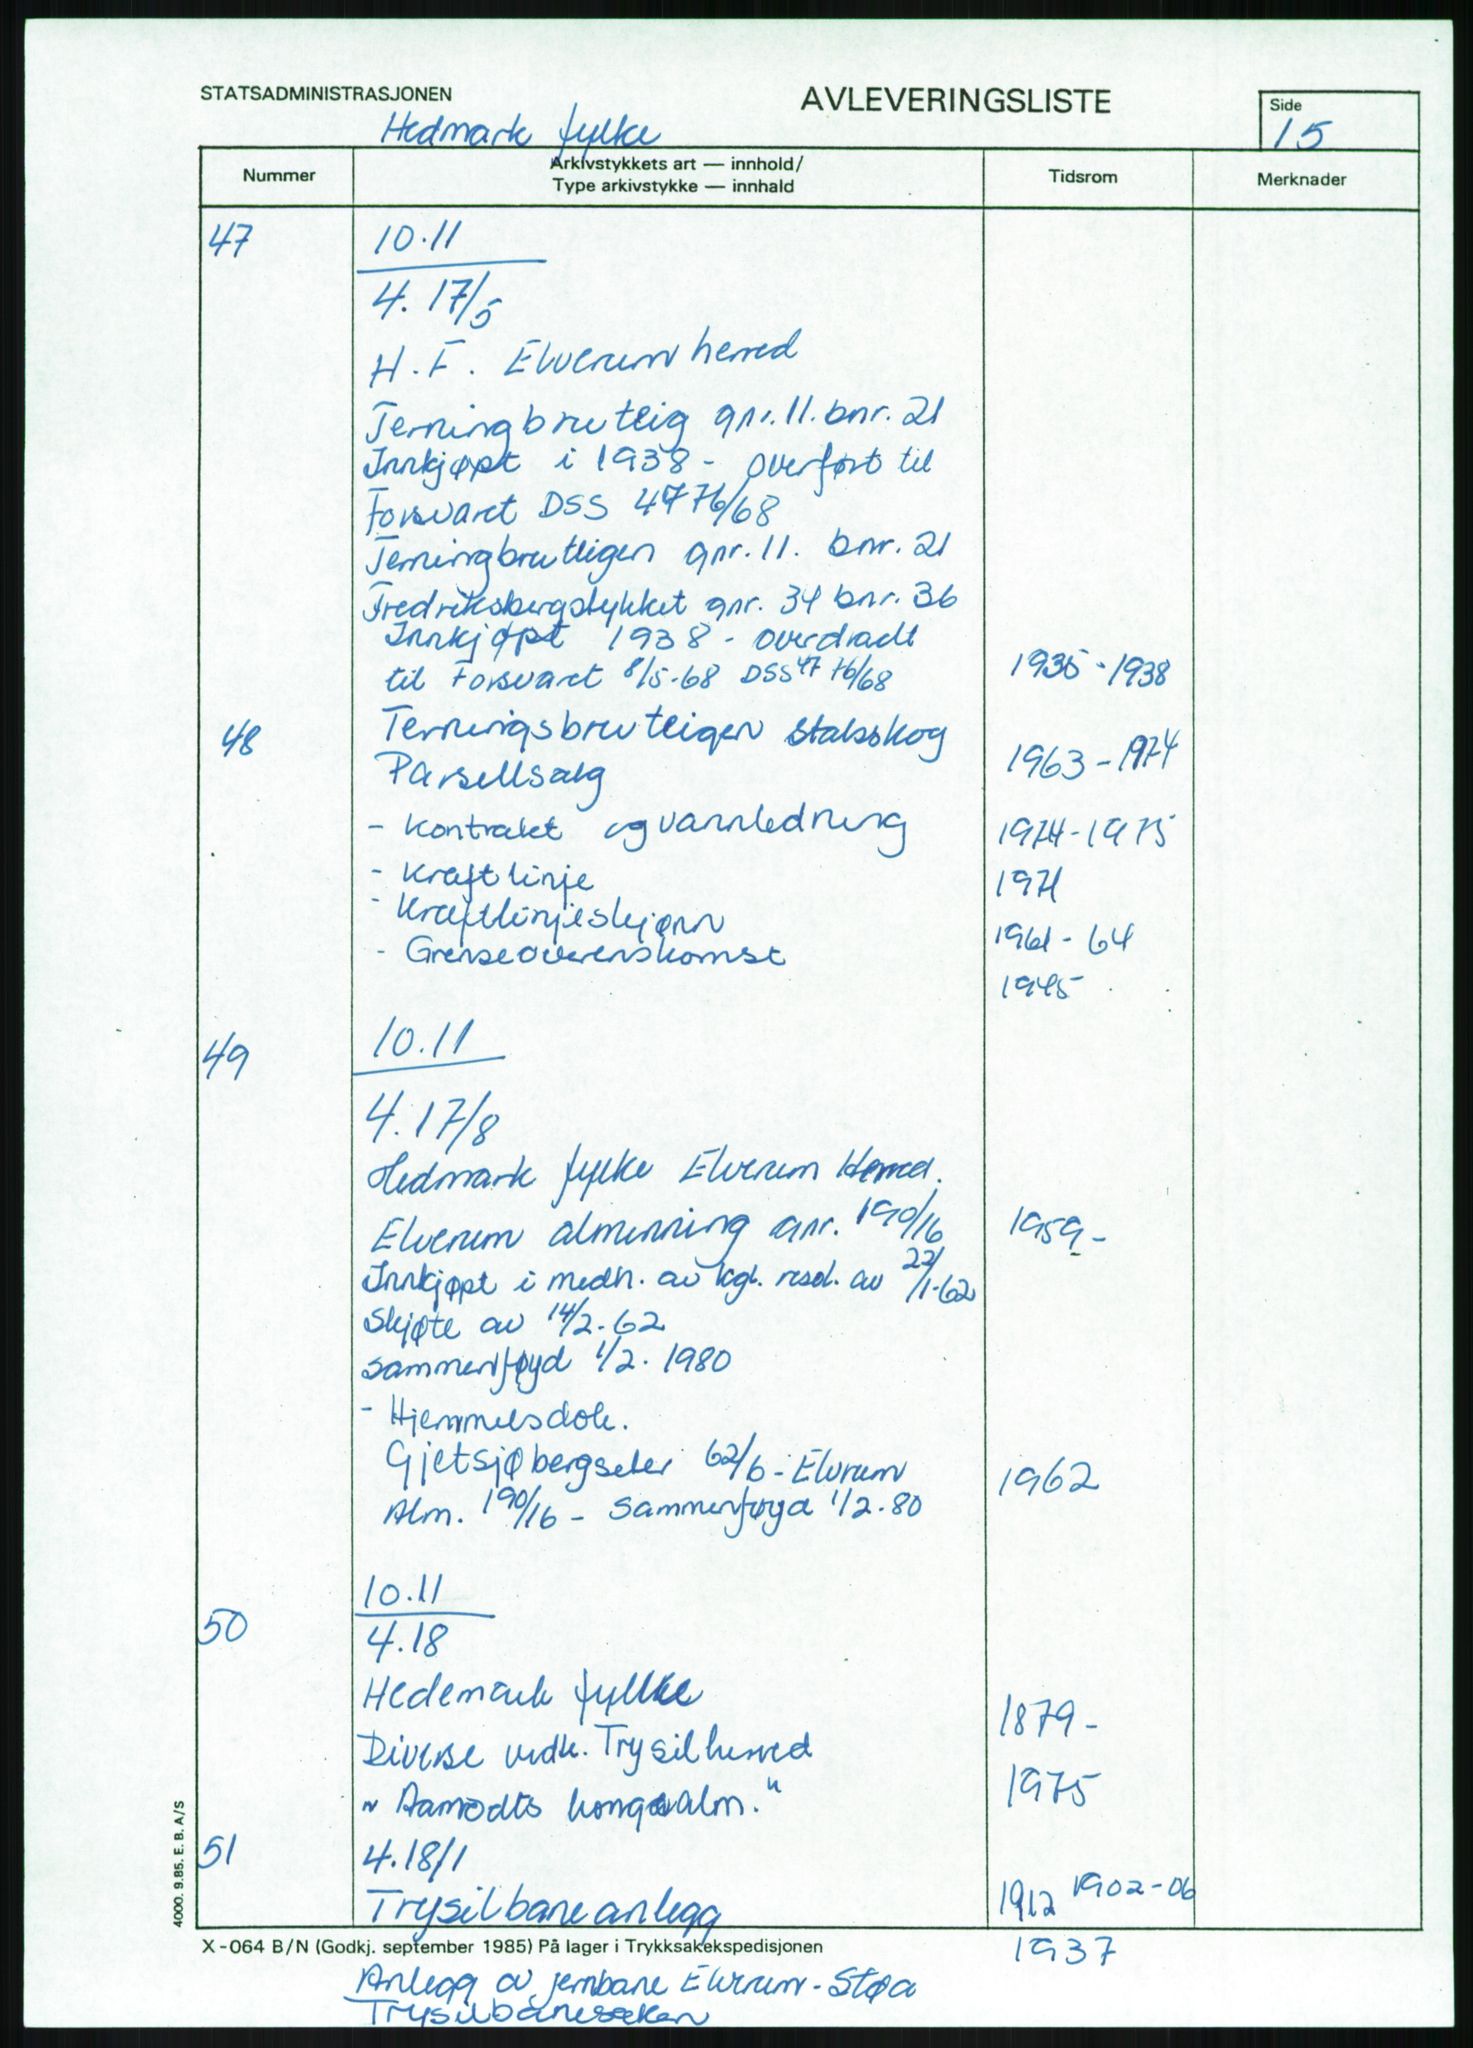 STATSADMINISTRASJONEN
AVLEVERINGSLISTE
Side
15
Hedmark fylke
Nummer
Arkivstykkets art — innhold/
Type arkivstykke — innhald
Tidsrom
Merknader
47
10.11
4. 17/5
H.F. Elverum herred
Terningbruteig gnr. 11. bnr. 21
Innkjøpt i 1938 - overført til
Forsvaret DSS 4776/68
Terningbruteigen gnr. 11. bnr. 21
Fredriksbergstykket gnr. 34 bnr. 36
Innkjøpt 1938 - overdradt
til Forsvaret 8/5-68 DSS 47 76/68 1935-1938
48 Terningsbruteigen statsskog
Parsellsalg 1963-1974
- Kontrakt og vannledning 1974-1975
- Kraftlinje 1971
- Kraftlinjeskjønn 1961-64
- Grenseoverenskomst 1945
49 10.11
4.17/8
Hedmark fylke Elverum Herred.
Elverum almenning gnr. 190/16 1959-
Innkjøpt i medh. av kgl. resol. av 22/1-62
Skjøte av 14/2-62
sammenføyd 1/2. 1980
- Hjemmelsdok.
Gjetsjøbergseter 62/6 - Elvrum 1962
Alm. 190/16 - Sammenføyd 1/2-80
10.11
50 4.18
Hedemark fylke 1879-
Diverse vedk. Trysil herred
" Aamodts kongealm." 1975
51 4.18/1
Trysilbaneanlegg 1912 1902-06
X-064 B/N (Godkj. september 1985) På lager i Trykksakekspedisjonen
1937
Anlegg av jernbane Elverum - Støa
Trysilbanesaken
4000. 9.85. E. B. A/S